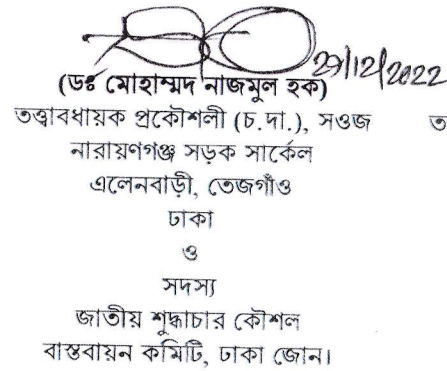 29/12/2022
(ডঃ মোহাম্মদ নাজমুল হক)
তত্ত্বাবধায়ক প্রকৌশলী (চ.দা.), সওজ ত
নারায়ণগঞ্জ সড়ক সার্কেল
এলেনবাড়ী, তেজগাঁও
ঢাকা
ও
সদস্য
জাতীয় শুদ্ধাচার কৌশল
বাস্তবায়ন কমিটি, ঢাকা জোন।